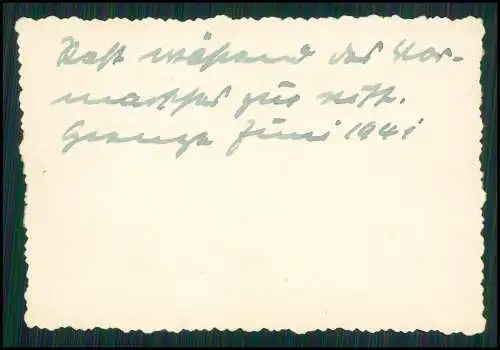 Rast während des Vor-
marsches zur russ.
Grenze Juni 1941